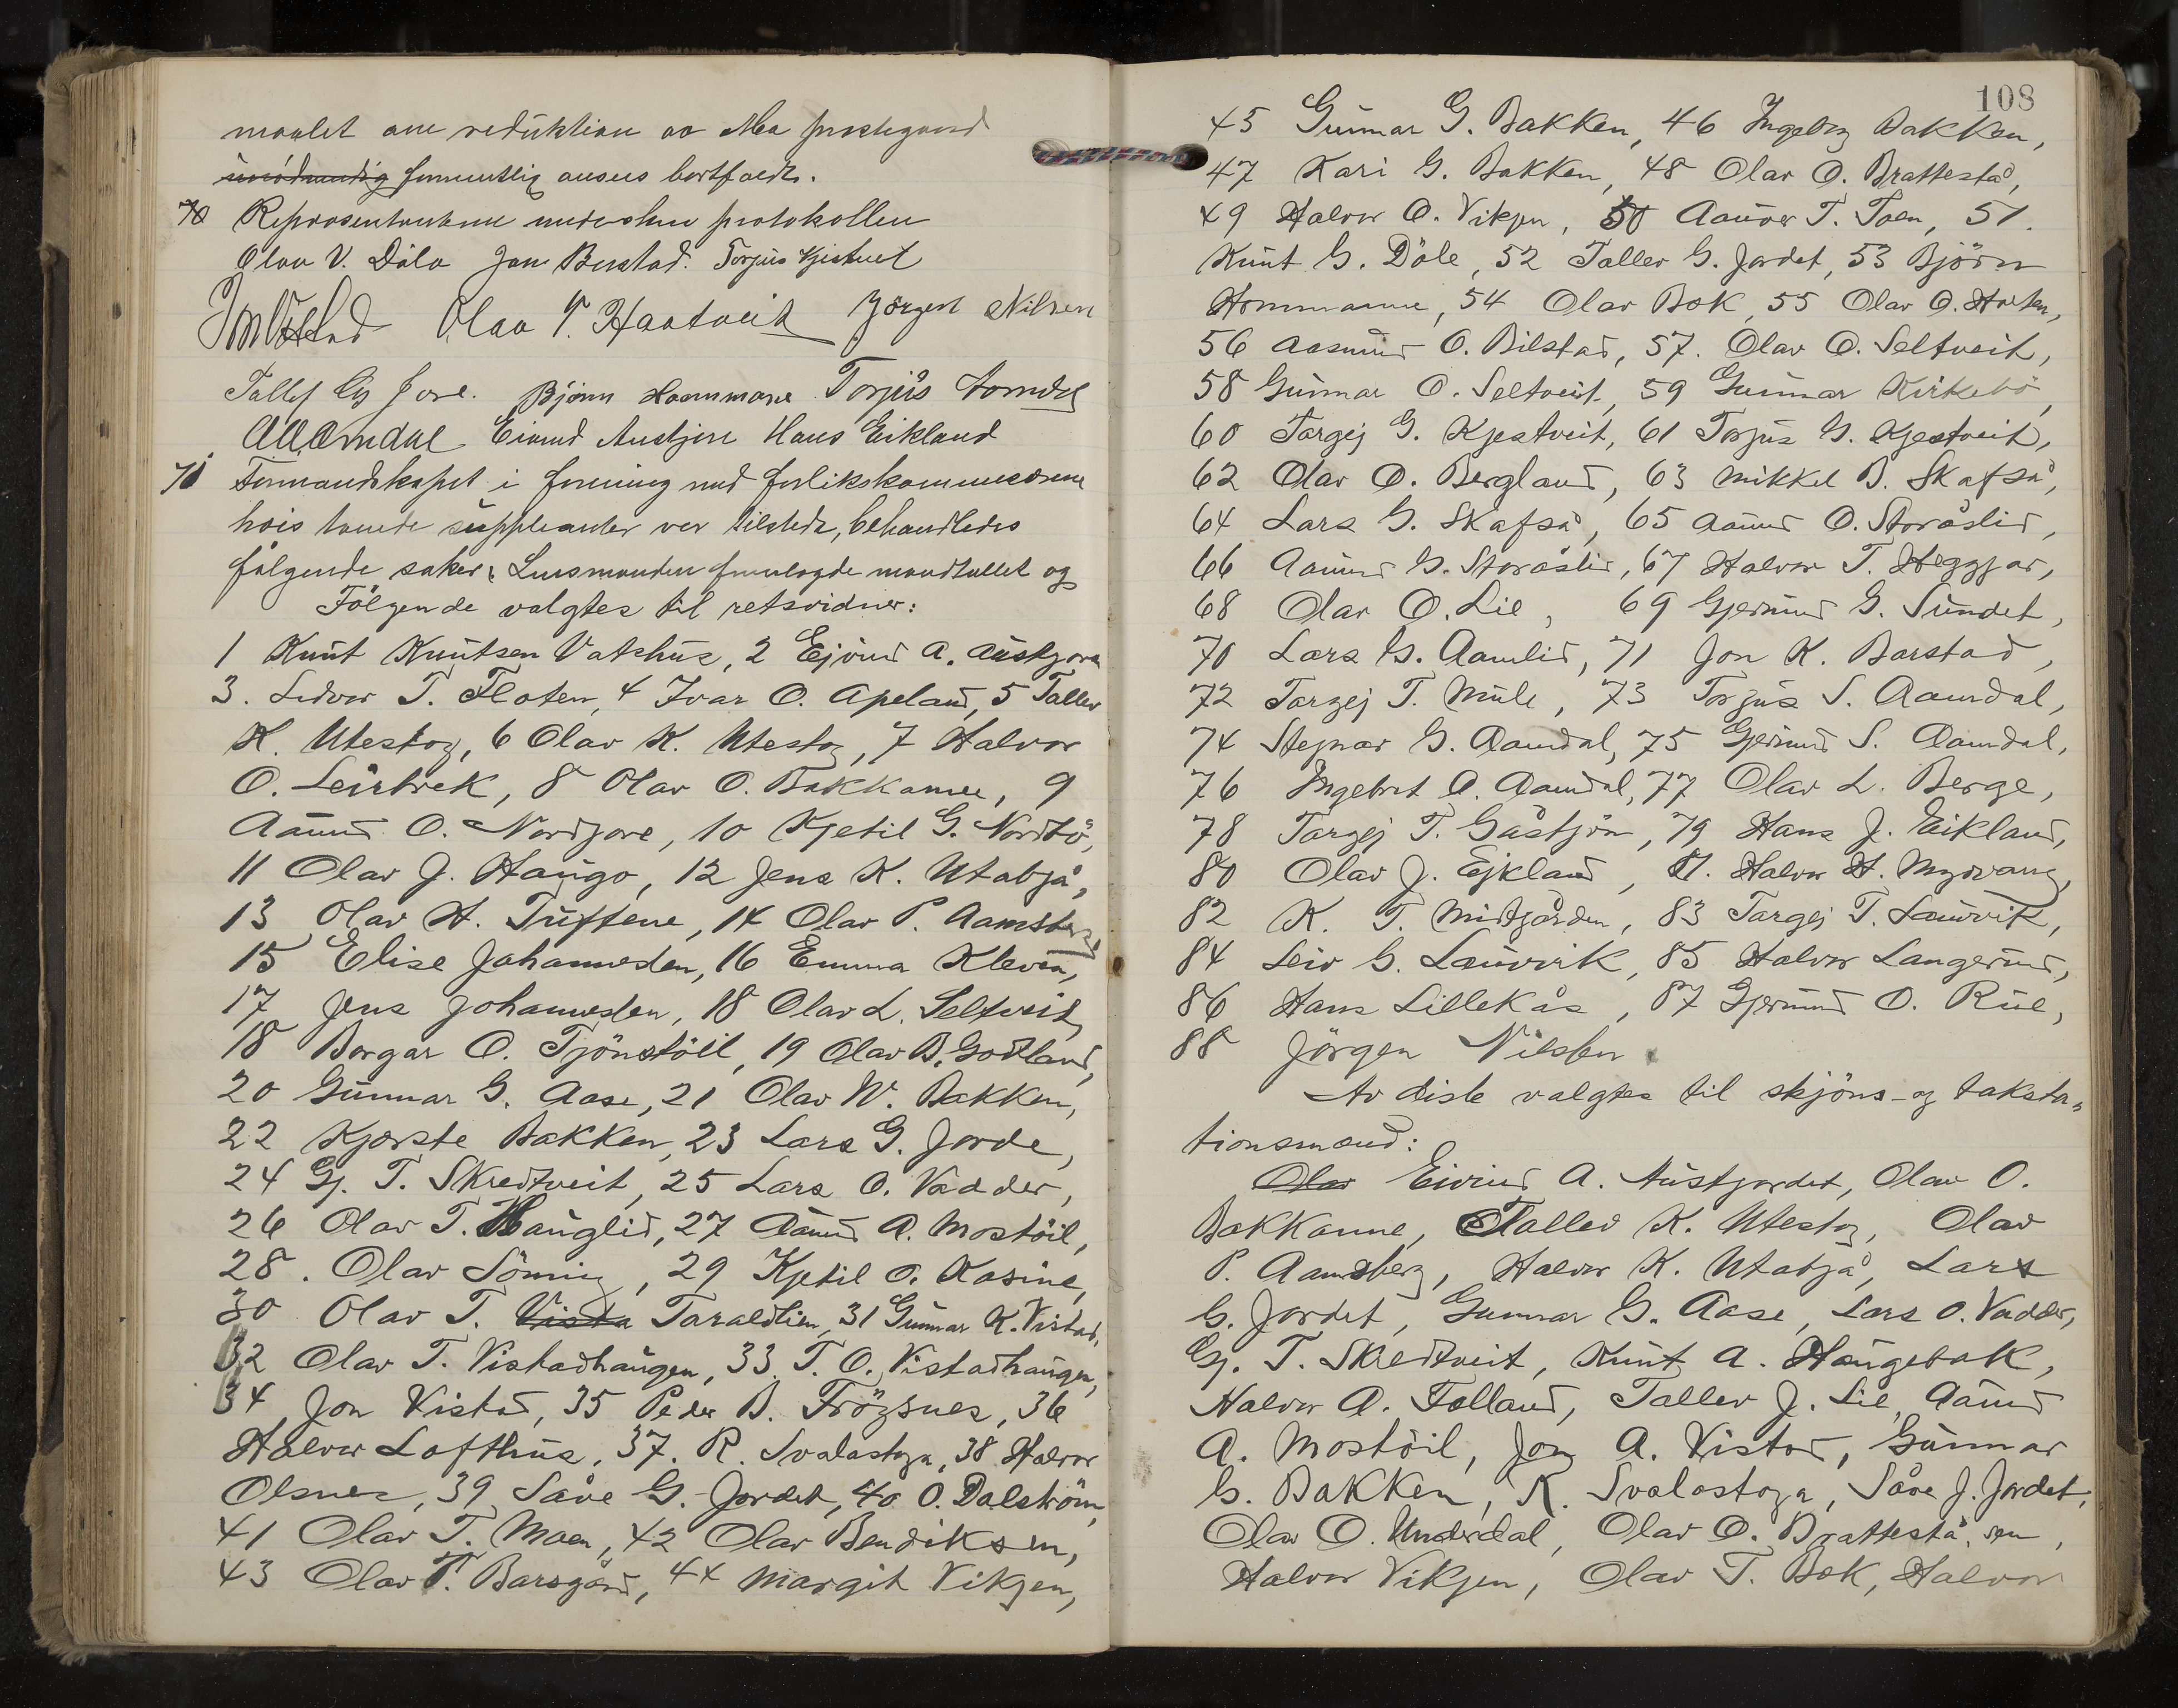 maalet om reduktion av Mo prestegaard
unödvendig formentlig ansees bortfaldt.
70 Repræsentantene underskrev protokollen
Olav V. Dåla Jon Berstad. Torjus Kjestveit
Olav T. Haatveit Jörgen Nilsen
Tallef G Jore. Bjørn Hommane Torjus Aamdal
A. A. Aamdal Eivind Austjore Hans Eikland
71 Formandskapet i forening med forlikskommissærene
hvis suppleanter var tilstede, behandledes
følgende saker: Lensmanden fremlagde mandtallet og
Følgende valgtes til retsvidner:
1 Knut Knutsen Vatshus, 2 Ejvind A. Austgjore
3. Ledvor T. Floten, 4 Ivar O. Apeland, 5 Tallev
K. Utestog, 6 Olav K. Utestog, 7 Halvor
O. Leirbrek, 8 Olav O. Bakkane, 9
Aamund O. Nordgjore, 10 Kjetil G. Nordbö,
11 Olav J. Haugo, 12 Jens K. Utabjå,
13 Olav H. Tuftene, 14 Olav P. Aamsberg
15 Elise Johannesen, 16 Emma Kleven,
17 Jens Johannesen, 18 Olav L. Seltveit,
18 Borgar O. Tjönstöil, 19 Olav B. Godtland,
20 Gunnar G. Aase, 21 Olav N. Bakken,
22 Kjærste Bakken, 23 Lars G. Jorde,
24 Gj. T. Skredtveit, 25 Lars O. Vadder,
26 Olav T. Hauglid, 27 Aamund A. Mostöil,
28. Olav Sönning, 29 Kjetil O. Kosine,
30 Olav T. Vista Taraldlien, 31 Gunnar K. Vistad,
32 Olav T. Vistadhaugen, 33. T. O. Vistadhaugen,
34 Jon Vistad, 35 Peder B. Frögsnes, 36
Halvor Lofthus, 37. R. Svalastoga, 38 Halvor
Olsnes, 39 Såve G. Jordet, 40 O. Dalström,
41 Olav T. Moen, 42 Olav Bendiksen,
43 Olav T. Barsgård, 44 Margit Vikjen,
108
45 Gunnar G. Bakken, 46 Ingeborg Bakken,
47 Kari G. Bakken, 48 Olav O. Brattestå,
49 Halvor O. Vikjen, 50 Aanver T. Toen, 51.
Knut G. Döle, 52 Tallev G. Jordet, 53 Björn
Hommanne, 54 Olav Bök, 55 Olav O.
56 Aasmund O. Bilstad, 57. Olav O. Seltveit,
58 Gunnar O. Seltveit, 59 Gunnar Kirkebö,
60 Targej G. Kjestveit, 61 Torjus G. Kjestveit,
62 Olav O. Bergland, 63 Mikkel B. Skafså,
64 Lars G. Skafså, 65 Aamund O. Storåslid,
66 Aamund G. Storåslid, 67 Halvor T. Heggjar,
68 Olav O. Lie, 69 Gjermund G. Sundet,
70 Lars G. Aamlid, 71 Jon K. Barstad,
72 Targej T. Mule, 73 Torjus S. Aamdal,
74 Steinar G. Aamdal, 75 Gjermund S. Aamdal,
76 Ingebret A. Aamdal, 77 Olav L. Berge,
78 Targej T. Gåstjön, 79 Hans J. Eikland,
80 Olav J. Ejkland, 81. Halvor H. Myrvang,
82 K. T. Midtgården, 83 Targej T. Lauvvik,
84 Leiv G. Lauvvik, 85 Halvor Langerud,
86 Hans Lillekås, 87 Gjermund O. Rue,
88 Jörgen Nilsen
Av disse valgtes til skjöns- og taksta-
tionsmænd:
Olav Eivind A. Austgjordet, Olav O.
Bakkanne, Tallev K. Utestog, Olav
P. Aamsberg, Halvor K. Utabjå, Lars
G. Jordet, Gunnar G. Aase, Lars O. Vadder,
Gj. T. Skredtveit, Knut A. Haugebak,
Halvor A. Folland, Tallev J. Lie, Aamund
A. Mostöil, Jon A. Vistad, Gunnar
G. Bakken, R. Svalastoga, Såve J. Jordet,
Olav O. Underdal, Olav O. Brattestå, sen,
Halvor Vikjen, Olav T. Bok, Halvor